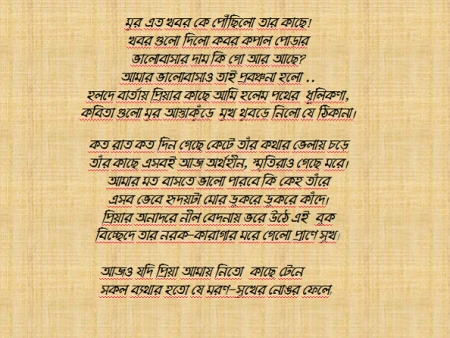 মুর এত খবর কে পৌঁছিলো তার কাছে!
খবর গুলো দিলো কবর কপাল পোড়ার
ভালোবাসার দাম কি গো আর আছে?
আমার ভালোবাসাও তাই প্রবঞ্চনা হলো ..
হলদে বার্তায় প্রিয়ার কাছে আমি হলেম পথের ধুলিকণা,
কবিতা গুলো মুর আস্তাকুঁড়ে মুখ থুবড়ে নিলো যে ঠিকানা।
কত রাত কত দিন গেছে কেটে তাঁর কথার ভেলায় চড়ে
তাঁর কাছে এসবই আজ অর্থহীন, স্মৃতিরাও গেছে মরে।
আমার মত বাসতে ভালো পারবে কি কেহ তাঁরে
এসব ভেবে হৃদয়টা মোর ডুকরে ডুকরে কাঁদে।
প্রিয়ার অনাদরে নীল বেদনায় ভরে উঠে এই বুক
বিচ্ছেদে তার নরক-কারাগার মরে গেলো প্রাণে সুখ।
আজও যদি প্রিয়া আমায় নিতো কাছে টেনে
সকল ব্যথার হতো যে মরণ-সুখের নোঙর ফেলে